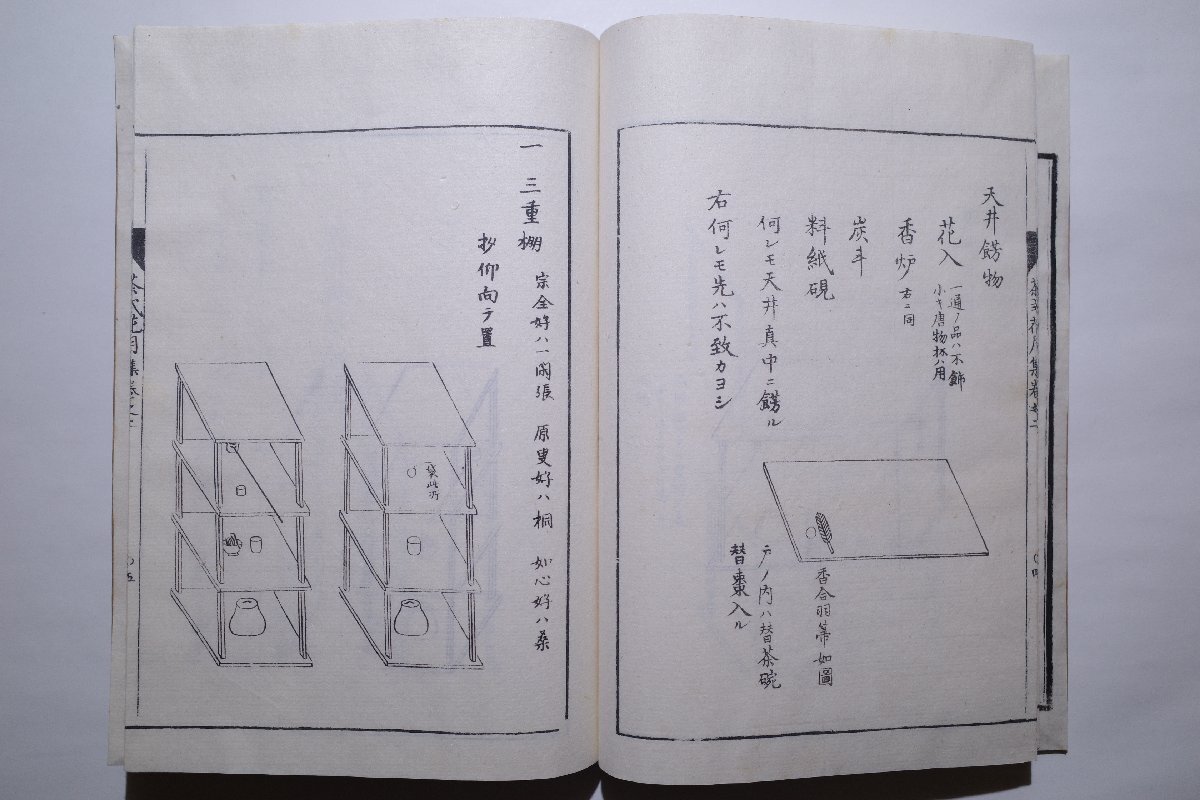 天井餝物
花入 一通ノ品ハ不飾
小キ唐物抔ハ用
香炉 右ニ同
炭斗
料紙硯
何レモ天井真中ニ餝ル
右何レモ先ハ不致カヨシ
香合羽箒如圖
戸ノ内ハ替茶碗
替棗入ル
一 三重棚 宗全好ハ一閑張 原叟好ハ桐 如心好ハ桑
杓仰向テ置